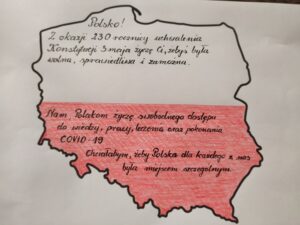 Polsko!
Z okazji 230 rocznicy uchwalenia
Konstytucji 3 maja życzę Ci, żebyś była
wolna, sprawiedliwa i zamożna.
Nam Polakom życzę swobodnego dostępu
do wiedzy, pracy, leczenia oraz pokonania
COVID-19
Chciałabym, żeby Polska dla każdego z nas
była miejscem szczególnym.